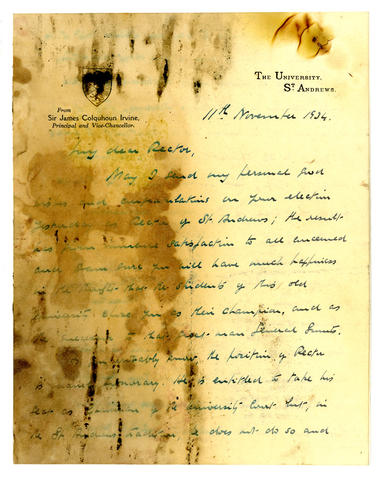 The University,
St Andrews.
From
Sir James Colquhoun Irvine,
Principal and Vice-Chancellor.
11th November 1934.
My dear Rector,
May I send my personal good
wishes and congratulations on your election
yesterday as Rector of St Andrews; the result
has given immense satisfaction to all concerned
and I am sure you will have much happiness
in the thought that the students of this old
University chose you as their Champion, and as
the successor to that great man General Smuts.
As you probably know the position of Rector
is mainly honorary. He is entitled to take his
seat as Chairman of the University Court but, in
the St Andrews tradition, he does not do so and